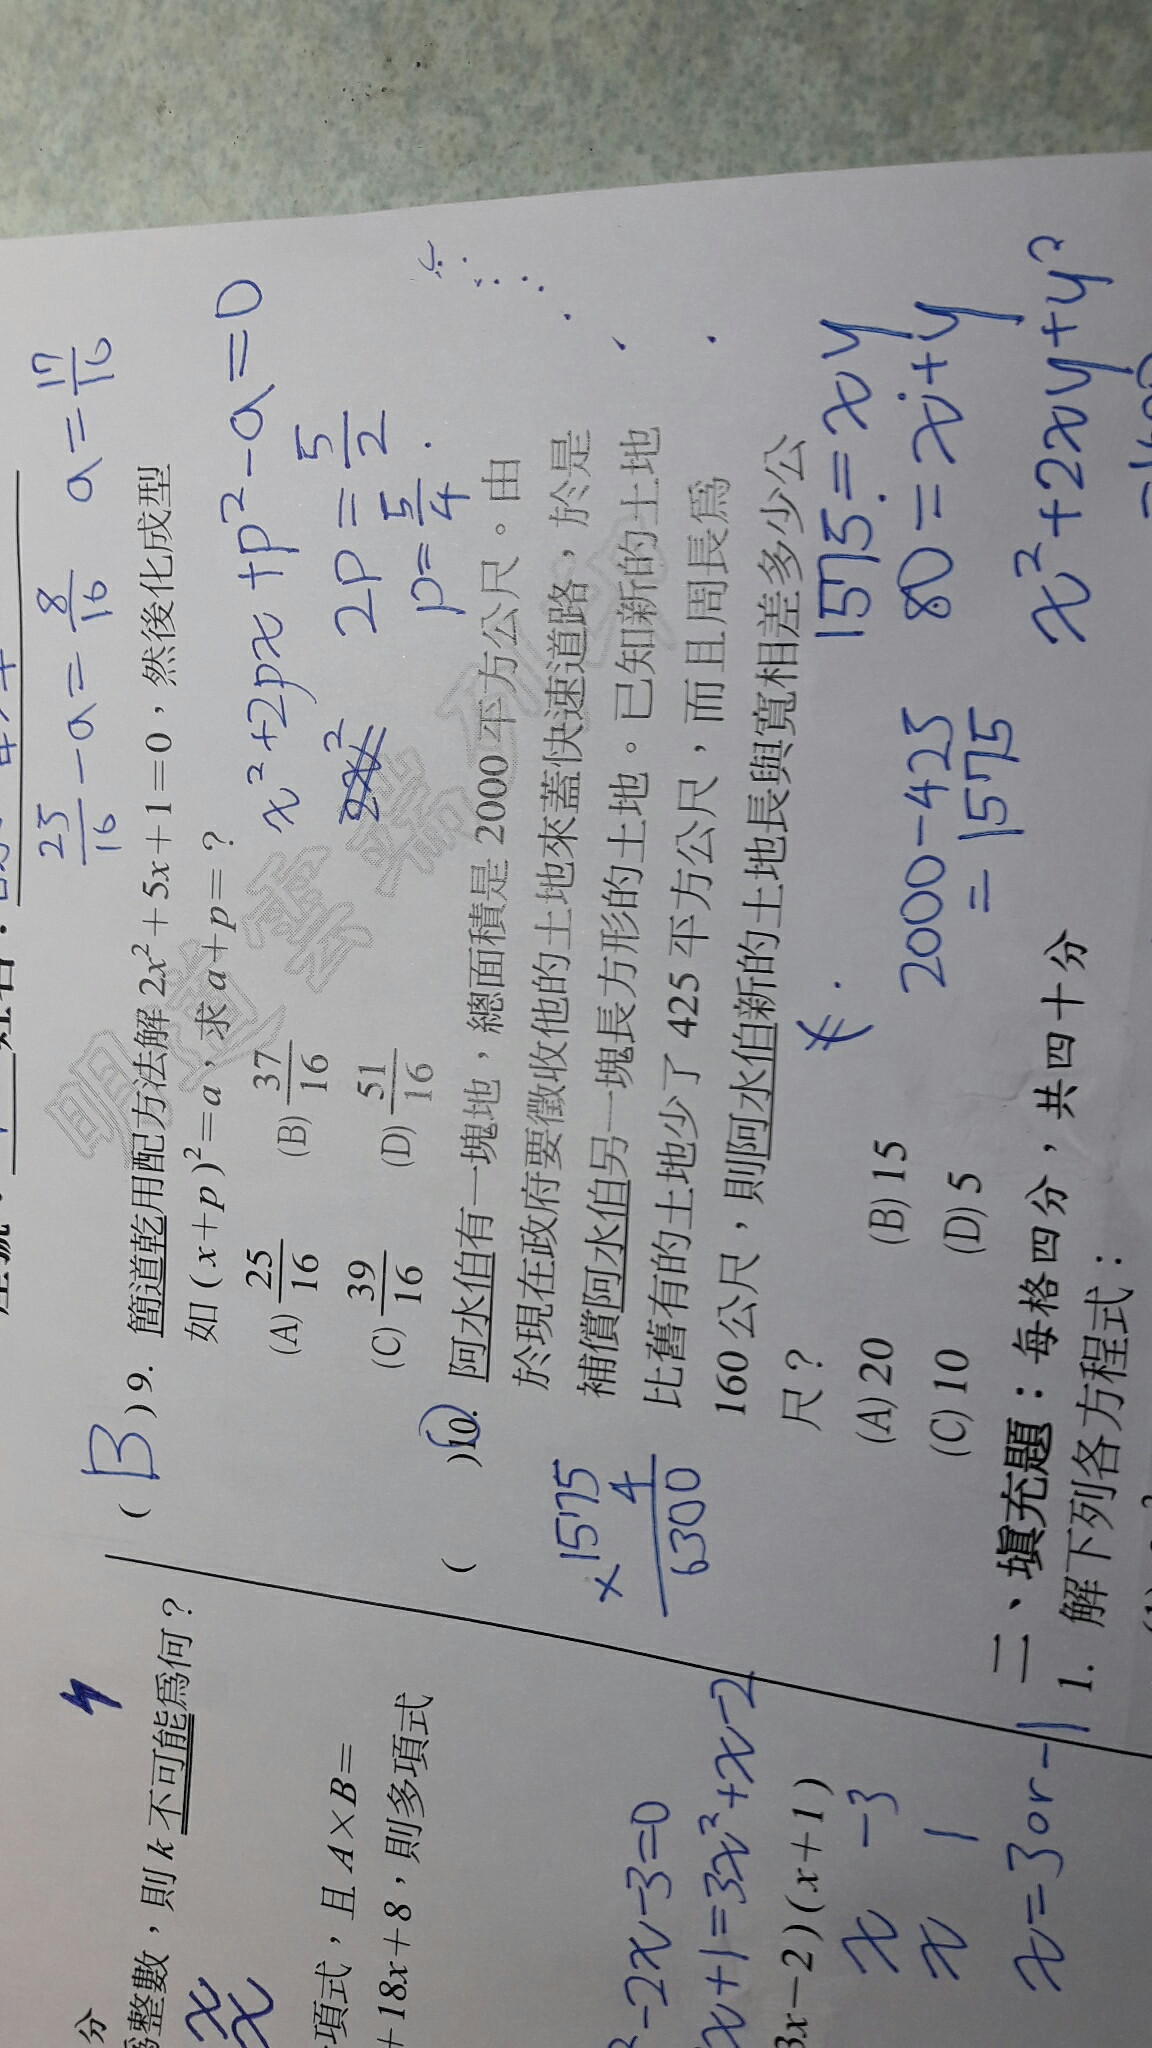 25/16 - a = 8/16 a = 17/16
( B ) 9. 簡道乾用配方法解 2x² + 5x + 1 = 0，然後化成型
如 (x + p)² = a，求 a + p = ？
(A) 25/16 (B) 37/16
(C) 39/16 (D) 51/16
x² + 2px + p² - a = 0
2P = 5/2
p = 5/4
( ) 10. 阿水伯有一塊地，總面積是 2000 平方公尺。由
於現在政府要徵收他的土地來蓋快速道路，於是
補償阿水伯另一塊長方形的土地。已知新的土地
比舊有的土地少了 425 平方公尺，而且周長為
160 公尺，則阿水伯新的土地長與寬相差多少公
尺？
(A) 20 (B) 15
(C) 10 (D) 5
1575 = xy
80 = x + y
2000 - 425
= 1575
x² + 2xy + y²
1575
× 4
6300
二、填充題：每格四分，共四十分
1. 解下列各方程式：
分
為整數，則 k 不可能為何？
項式，且 A × B =
+ 18x + 8，則多項式
- 2x - 3 = 0
x + 1 = 3x² + x - 2
3x - 2)(x + 1)
x -3
x 1
x = 3 or -1